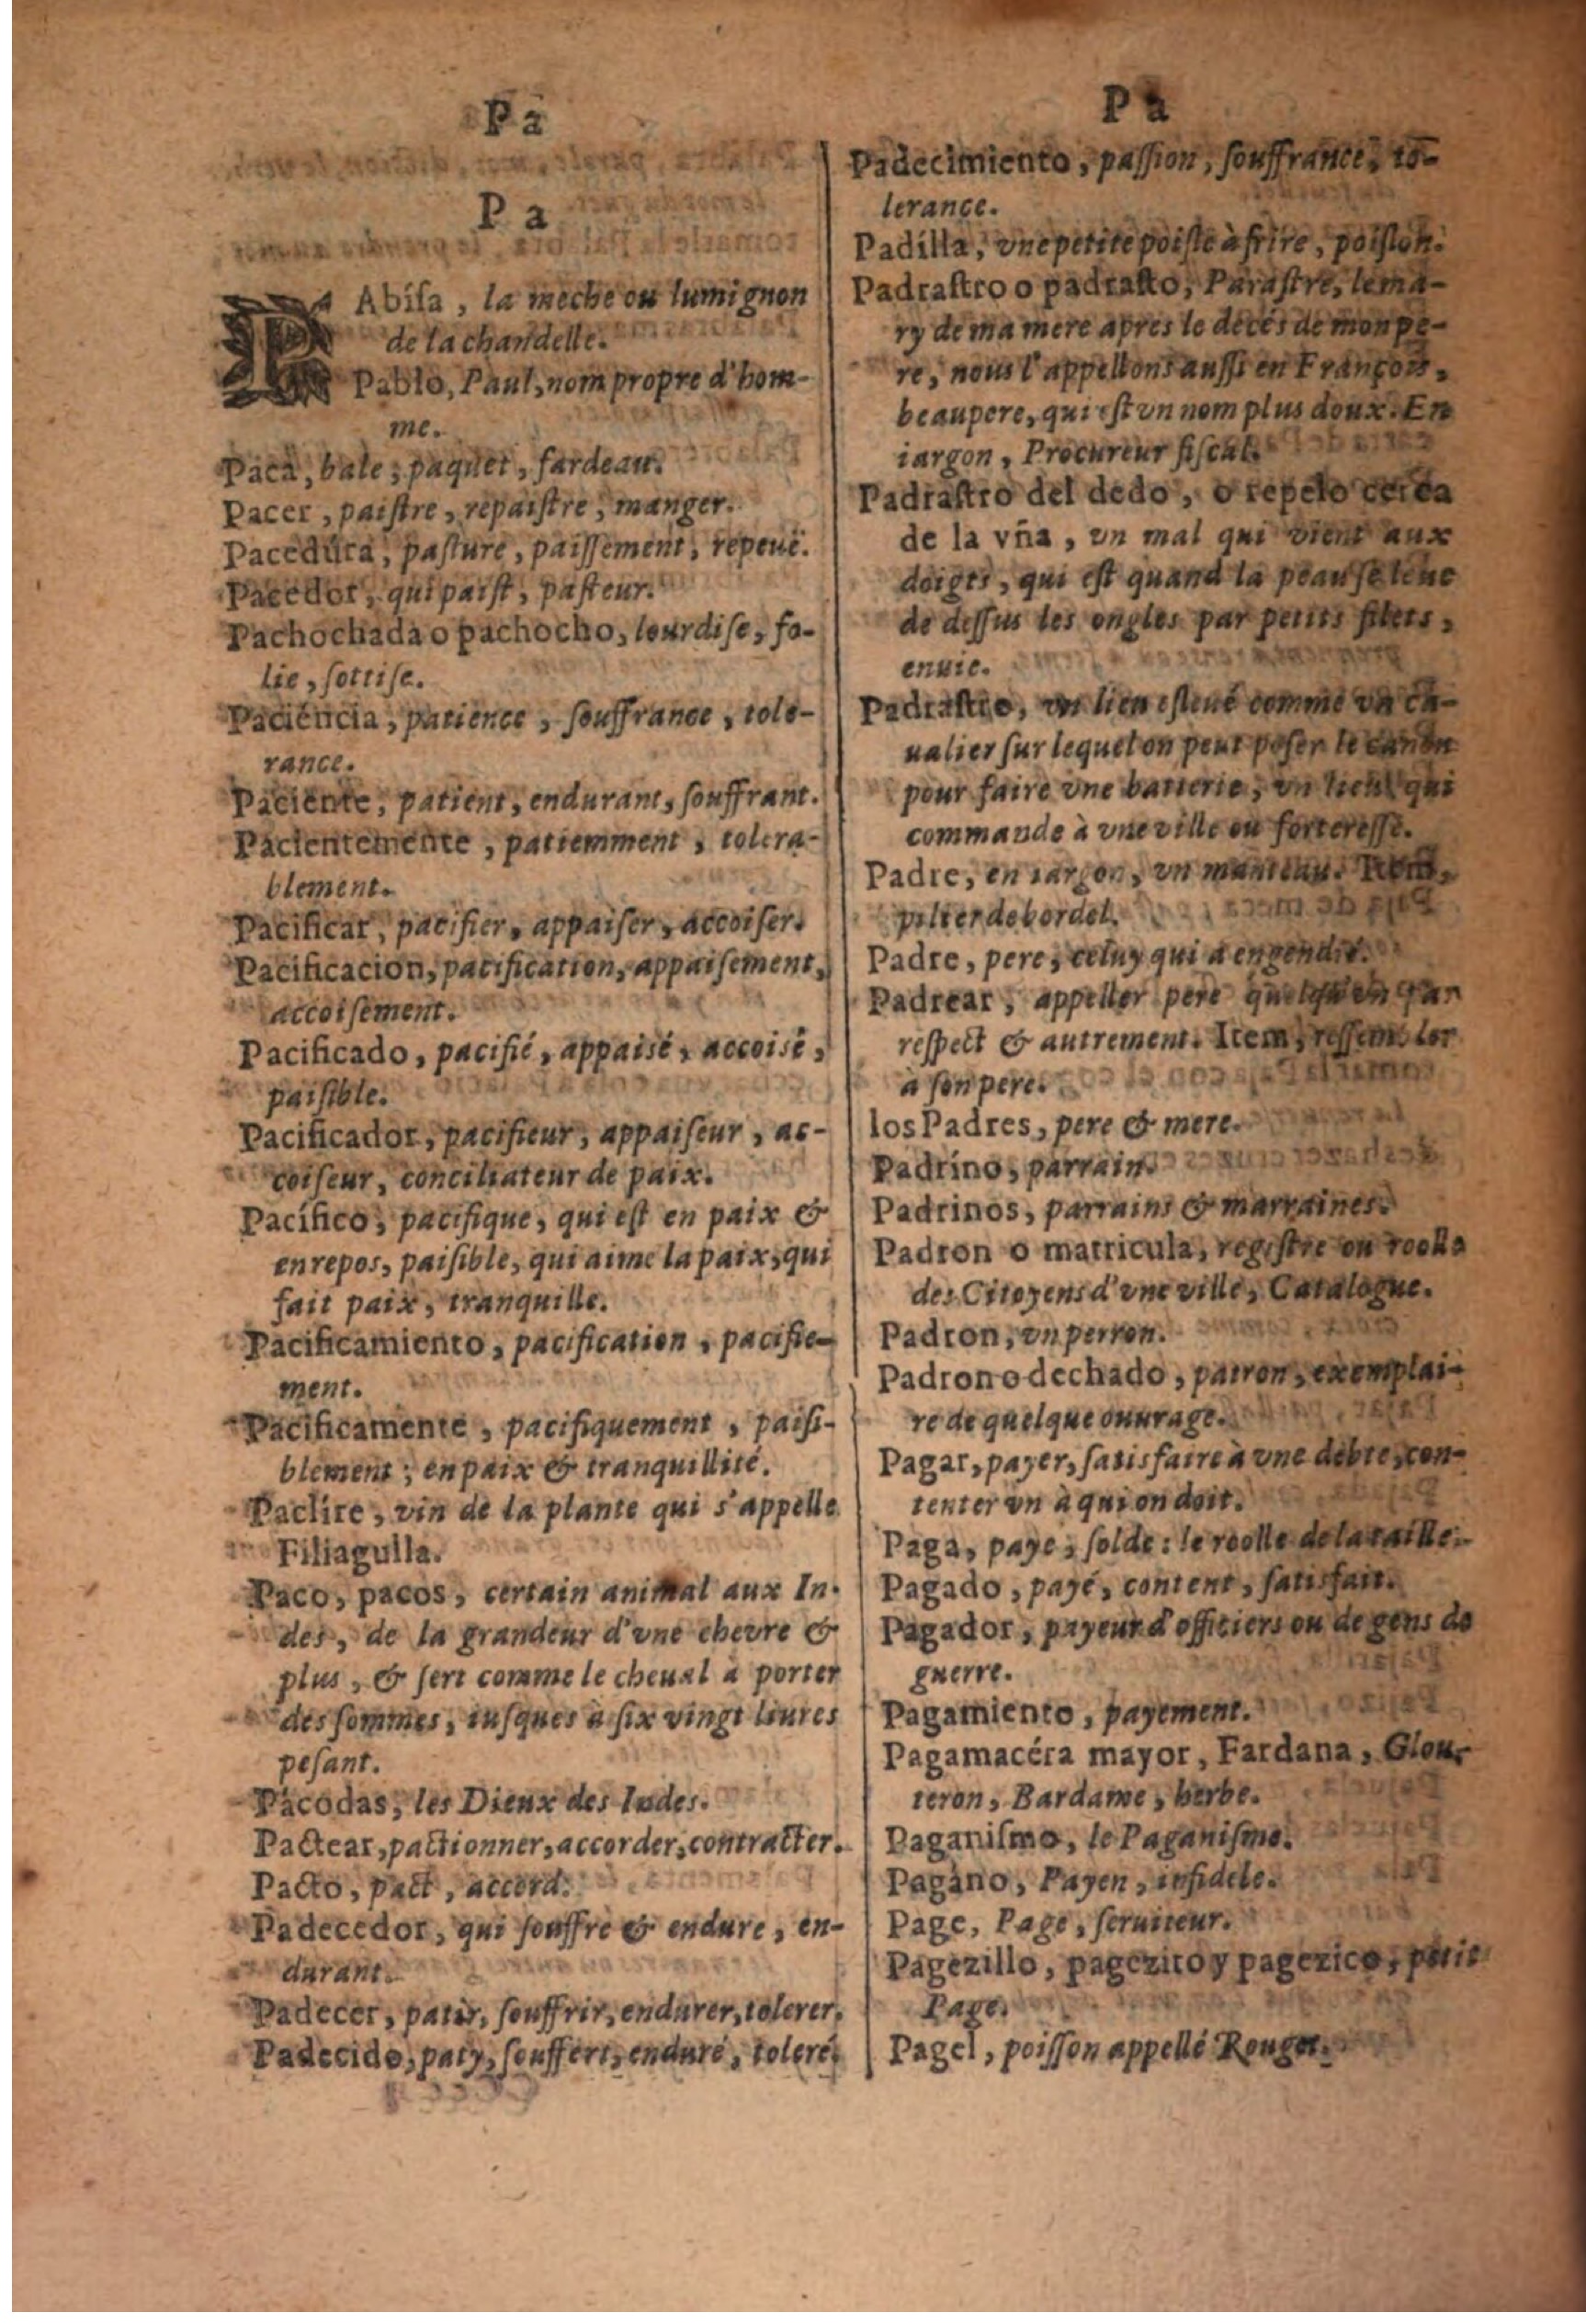 Pa
Pa
PAbíſa, la meche ou lumignon
de la chandelle.
Pablo, Paul, nom propre d'hom-
me.
Paca, bale, paquet, fardeau.
Pacer, paiſtre, repaiſtre, manger.
Pacedúra, paſture, paiſſement, repeuë.
Pacedor, qui paiſt, paſteur.
Pachochada o pachocho, lourdiſe, fo-
lie, ſottiſe.
Paciéncia, patience, ſouffrance, tole-
rance.
Paciénte, patient, endurant, ſouffrant.
Pacientemente, patiemment, tolera-
blement.
Pacificar, pacifier, appaiſer, accoiſer.
Pacificacion, pacification, appaiſement,
accoiſement.
Pacificado, pacifié, appaisé, accoisé,
paiſible.
Pacificador, pacifieur, appaiſeur, ac-
coiſeur, conciliateur de paix.
Pacífico, pacifique, qui eſt en paix &
en repos, paiſible, qui aime la paix, qui
fait paix, tranquille.
Pacificamiento, pacification, pacifie-
ment.
Pacificamente, pacifiquement, paiſi-
blement; en paix & tranquillité.
Paclíre, vin de la plante qui s'appelle
Filiagulla.
Paco, pacos, certain animal aux In-
des, de la grandeur d'vne chevre &
plus, & ſert comme le cheual à porter
des ſommes, iuſques à ſix vingt liures
peſant.
Pácodas, les Dieux des Indes.
Pactear, pactionner, accorder, contracter.
Pacto, pact, accord.
Padecedor, qui ſouffre & endure, en-
durant.
Padecer, patir, ſouffrir, endurer, tolerer.
Padecido, paty, ſouffert, enduré, toleré.
Pa
Padecimiento, paſſion, ſouffrance, to-
lerance.
Padílla, vne petite poiſle à frire, poiſlon.
Padraſtro o padraſto, Paraſtre, le ma-
ry de ma mere apres le decés de mon pe-
re, nous l'appellons auſſi en François,
beaupere, qui eſt vn nom plus doux. En
iargon, Procureur fiſcal.
Padraſtro del dedo, o repelo cerca
de la vña, vn mal qui vient aux
doigts, qui eſt quand la peau ſe leue
de deſſus les ongles par petits filets,
enuie.
Padraſtro, vn lieu eſleué comme vn ca-
ualier ſur lequel on peut poſer le canon
pour faire vne batterie, vn lieu qui
commande à vne ville ou fortereſſe.
Padre, en iargon, vn manteau. Item,
pilier de bordel.
Padre, pere, celuy qui a engendré.
Padrear, appeller pere quelqu'vn par
reſpect & autrement. Item, reſſembler
à ſon pere.
los Padres, pere & mere.
Padríno, parrain.
Padrinos, parrains & marraines.
Padron o matricula, regiſtre ou roolle
des Citoyens d'vne ville, Catalogue.
Padron, vn perron.
Padron o dechado, patron, exemplai-
re de quelque ouurage.
Pagar, payer, ſatisfaire à vne debte, con-
tenter vn à qui on doit.
Paga, paye, ſolde: le roolle de la taille.
Pagado, payé, content, ſatisfait.
Pagador, payeur d'officiers ou de gens de
guerre.
Pagamiento, payement.
Pagamacéra mayor, Fardana, Glou-
teron, Bardame, herbe.
Paganiſmo, le Paganiſme.
Pagáno, Payen, infidele.
Page, Page, ſeruiteur.
Pagezillo, pagezito y pagezico, petit
Page.
Pagel, poiſſon appellé Rouget.